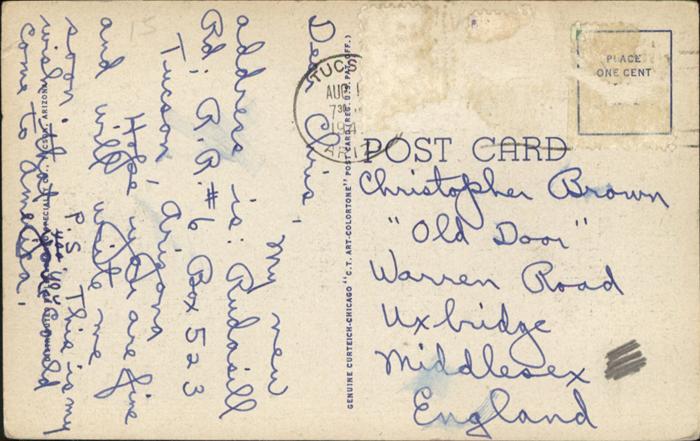 Dear Chris,
My new
address is: Rudasill
Rd; R.R.#6 Box 523
Tucson, Arizona
Hope you are fine
and will write me
soon.
P.S. This is my
wish that you could
come to America.
15
GENUINE CURTEICH-CHICAGO "C.T. ART-COLORTONE" POST CARD (REG. U.S. PAT. OFF.)
TUCS
AUG
730
194
PLACE
ONE CENT
POST CARD
Christopher Brown
"Old Door"
Warren Road
Uxbridge
Middlesex
England